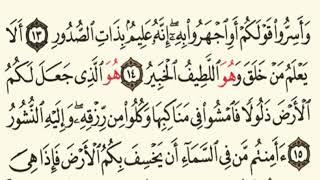 وَأَسِرُّوا۟ قَوْلَكُمْ أَوِ ٱجْهَرُوا۟ بِهِۦٓ ۖ إِنَّهُۥ عَلِيمٌۢ بِذَاتِ ٱلصُّدُورِ ١٣ أَلَا
يَعْلَمُ مَنْ خَلَقَ وَهُوَ ٱللَّطِيفُ ٱلْخَبِيرُ ١٤ هُوَ ٱلَّذِى جَعَلَ لَكُمُ
ٱلْأَرْضَ ذَلُولًا فَٱمْشُوا۟ فِى مَنَاكِبِهَا وَكُلُوا۟ مِن رِّزْقِهِۦ ۖ وَإِلَيْهِ ٱلنُّشُورُ
١٥ ءَأَمِنتُم مَّن فِى ٱلسَّمَآءِ أَن يَخْسِفَ بِكُمُ ٱلْأَرْضَ فَإِذَا هِىَ